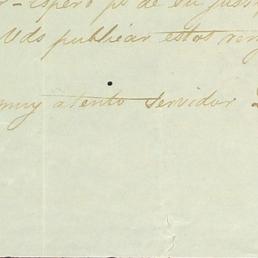 Espero ps de su
Vds publicar estos
muy atento servidor